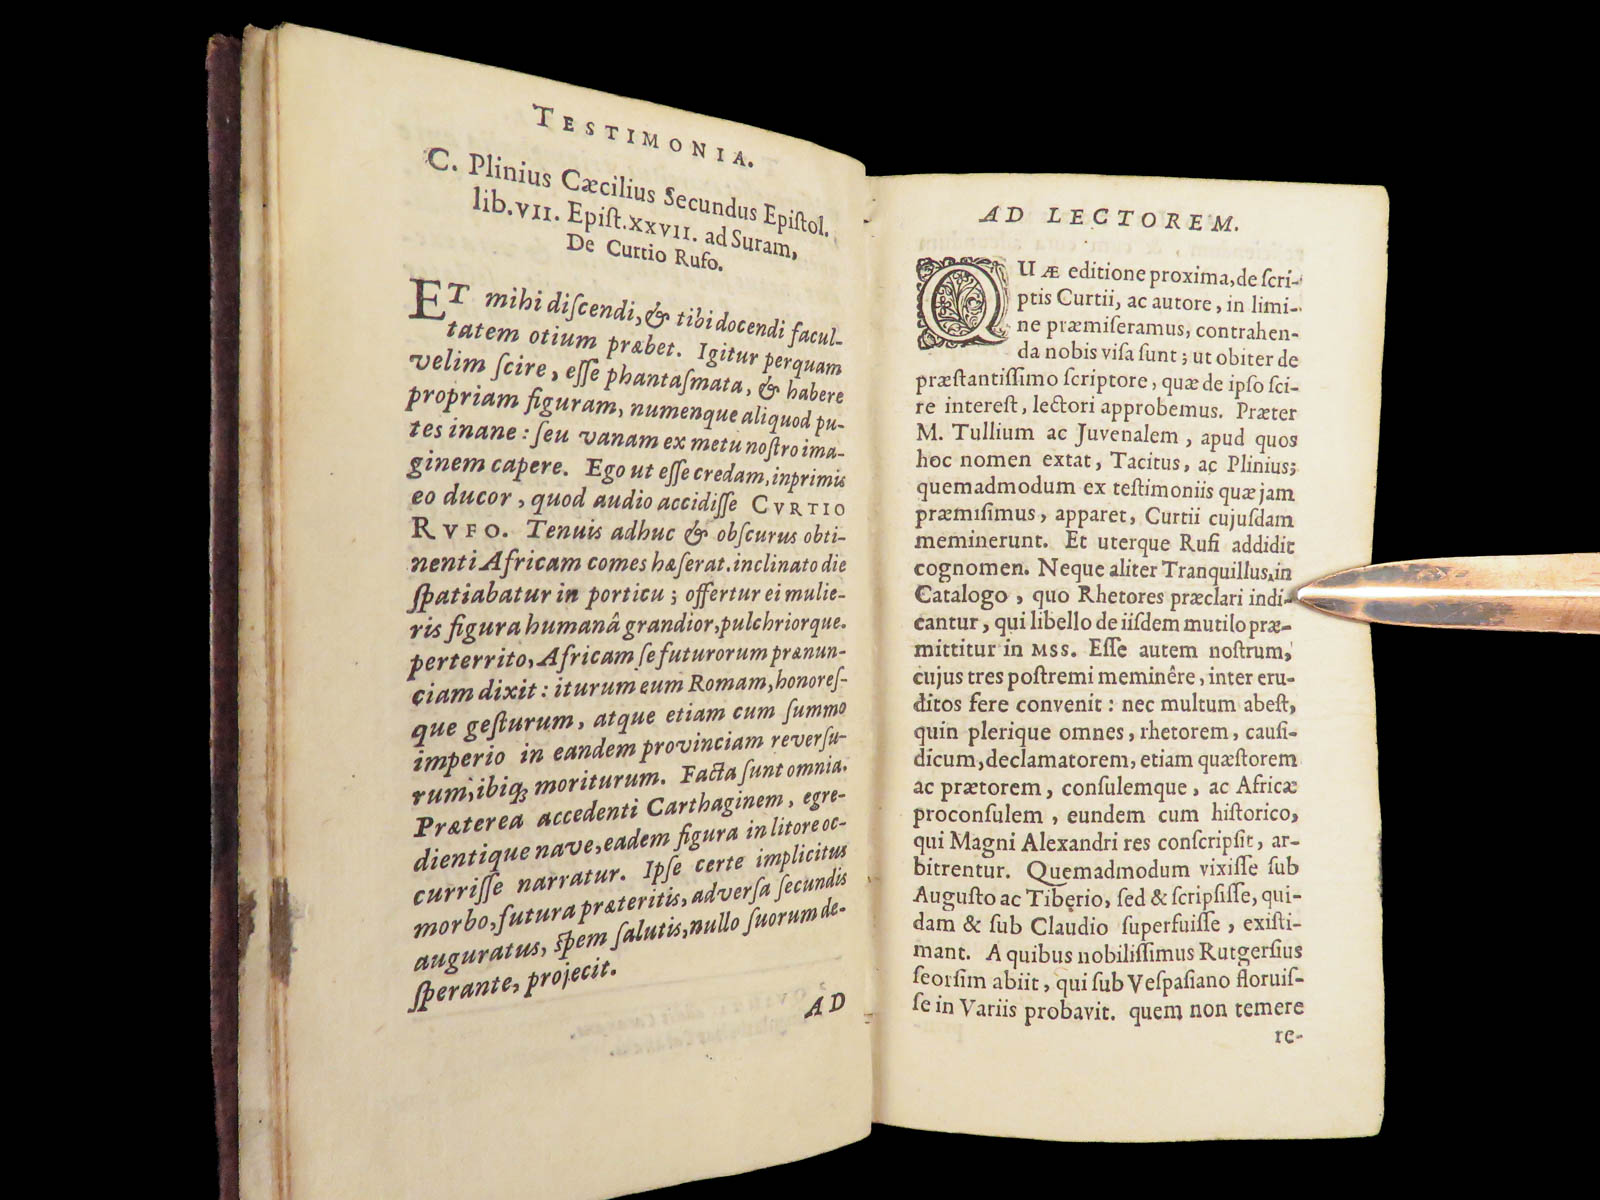 TESTIMONIA.
C. Plinius Cæcilius Secundus Epiſtol.
lib.VII. Epiſt.XXVII. ad Suram,
De Curtio Rufo.
ET mihi diſcendi, & tibi docendi facul-
tatem otium præbet. Igitur perquam
velim ſcire, eſſe phantaſmata, & habere
propriam figuram, numenque aliquod pu-
tes inane: ſeu vanam ex metu noſtro ima-
ginem capere. Ego ut eſſe credam, inprimis
eo ducor, quod audio accidiſſe CVRTIO
RVFO. Tenuis adhuc & obſcurus obti-
nenti Africam comes hæſerat. inclinato die
ſpatiabatur in porticu; offertur ei mulie-
ris figura humanâ grandior, pulchriorque.
perterrito, Africam ſe futurorum prænun-
ciam dixit: iturum eum Romam, honoreſ-
que geſturum, atque etiam cum ſummo
imperio in eandem provinciam reverſu-
rum, ibiqꝫ moriturum. Facta ſunt omnia.
Præterea accedenti Carthaginem, egre-
dientique nave, eadem figura in litore oc-
curriſſe narratur. Ipſe certe implicitus
morbo, futura præteritis, adverſa ſecundis
auguratus, ſpem ſalutis, nullo ſuorum de-
ſperante, projecit.
AD
AD LECTOREM.
QUÆ editione proxima, de ſcri-
ptis Curtii, ac autore, in limi-
ne præmiſeramus, contrahen-
da nobis viſa ſunt; ut obiter de
præſtantiſſimo ſcriptore, quæ de ipſo ſci-
re intereſt, lectori approbemus. Præter
M. Tullium ac Juvenalem, apud quos
hoc nomen extat, Tacitus, ac Plinius;
quemadmodum ex teſtimoniis quæ jam
præmiſimus, apparet, Curtii cujuſdam
meminerunt. Et uterque Rufi addidit
cognomen. Neque aliter Tranquillus, in
Catalogo, quo Rhetores præclari indi-
cantur, qui libello de iiſdem mutilo præ-
mittitur in MSS. Eſſe autem noſtrum,
cujus tres poſtremi meminêre, inter eru-
ditos fere convenit: nec multum abeſt,
quin plerique omnes, rhetorem, cauſi-
dicum, declamatorem, etiam quæſtorem
ac prætorem, conſulemque, ac Africæ
proconſulem, eundem cum hiſtorico,
qui Magni Alexandri res conſcripſit, ar-
bitrentur. Quemadmodum vixiſſe ſub
Auguſto ac Tiberio, ſed & ſcripſiſſe, qui-
dam & ſub Claudio ſuperfuiſſe, exiſti-
mant. A quibus nobiliſſimus Rutgerſius
ſeorſim abiit, qui ſub Veſpaſiano floruiſ-
ſe in Variis probavit. quem non temere
re-